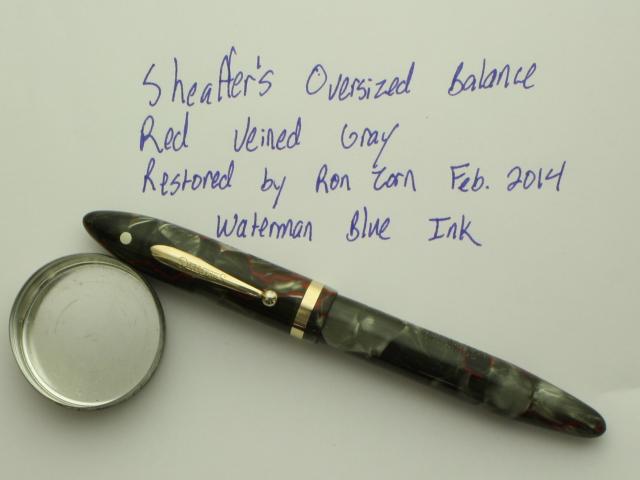 Sheaffer's Oversized Balance
Red Veined Gray
Restored by Ron Zorn Feb. 2014
Waterman Blue Ink
SHEAFFER'S